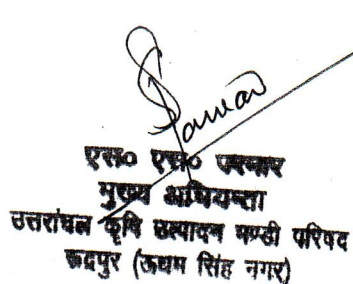 एस० एस० परमार
मुख्य अभियन्ता
उत्तरांचल कृषि उत्पादन मण्डी परिषद
रूद्रपुर (ऊधम सिंह नगर)